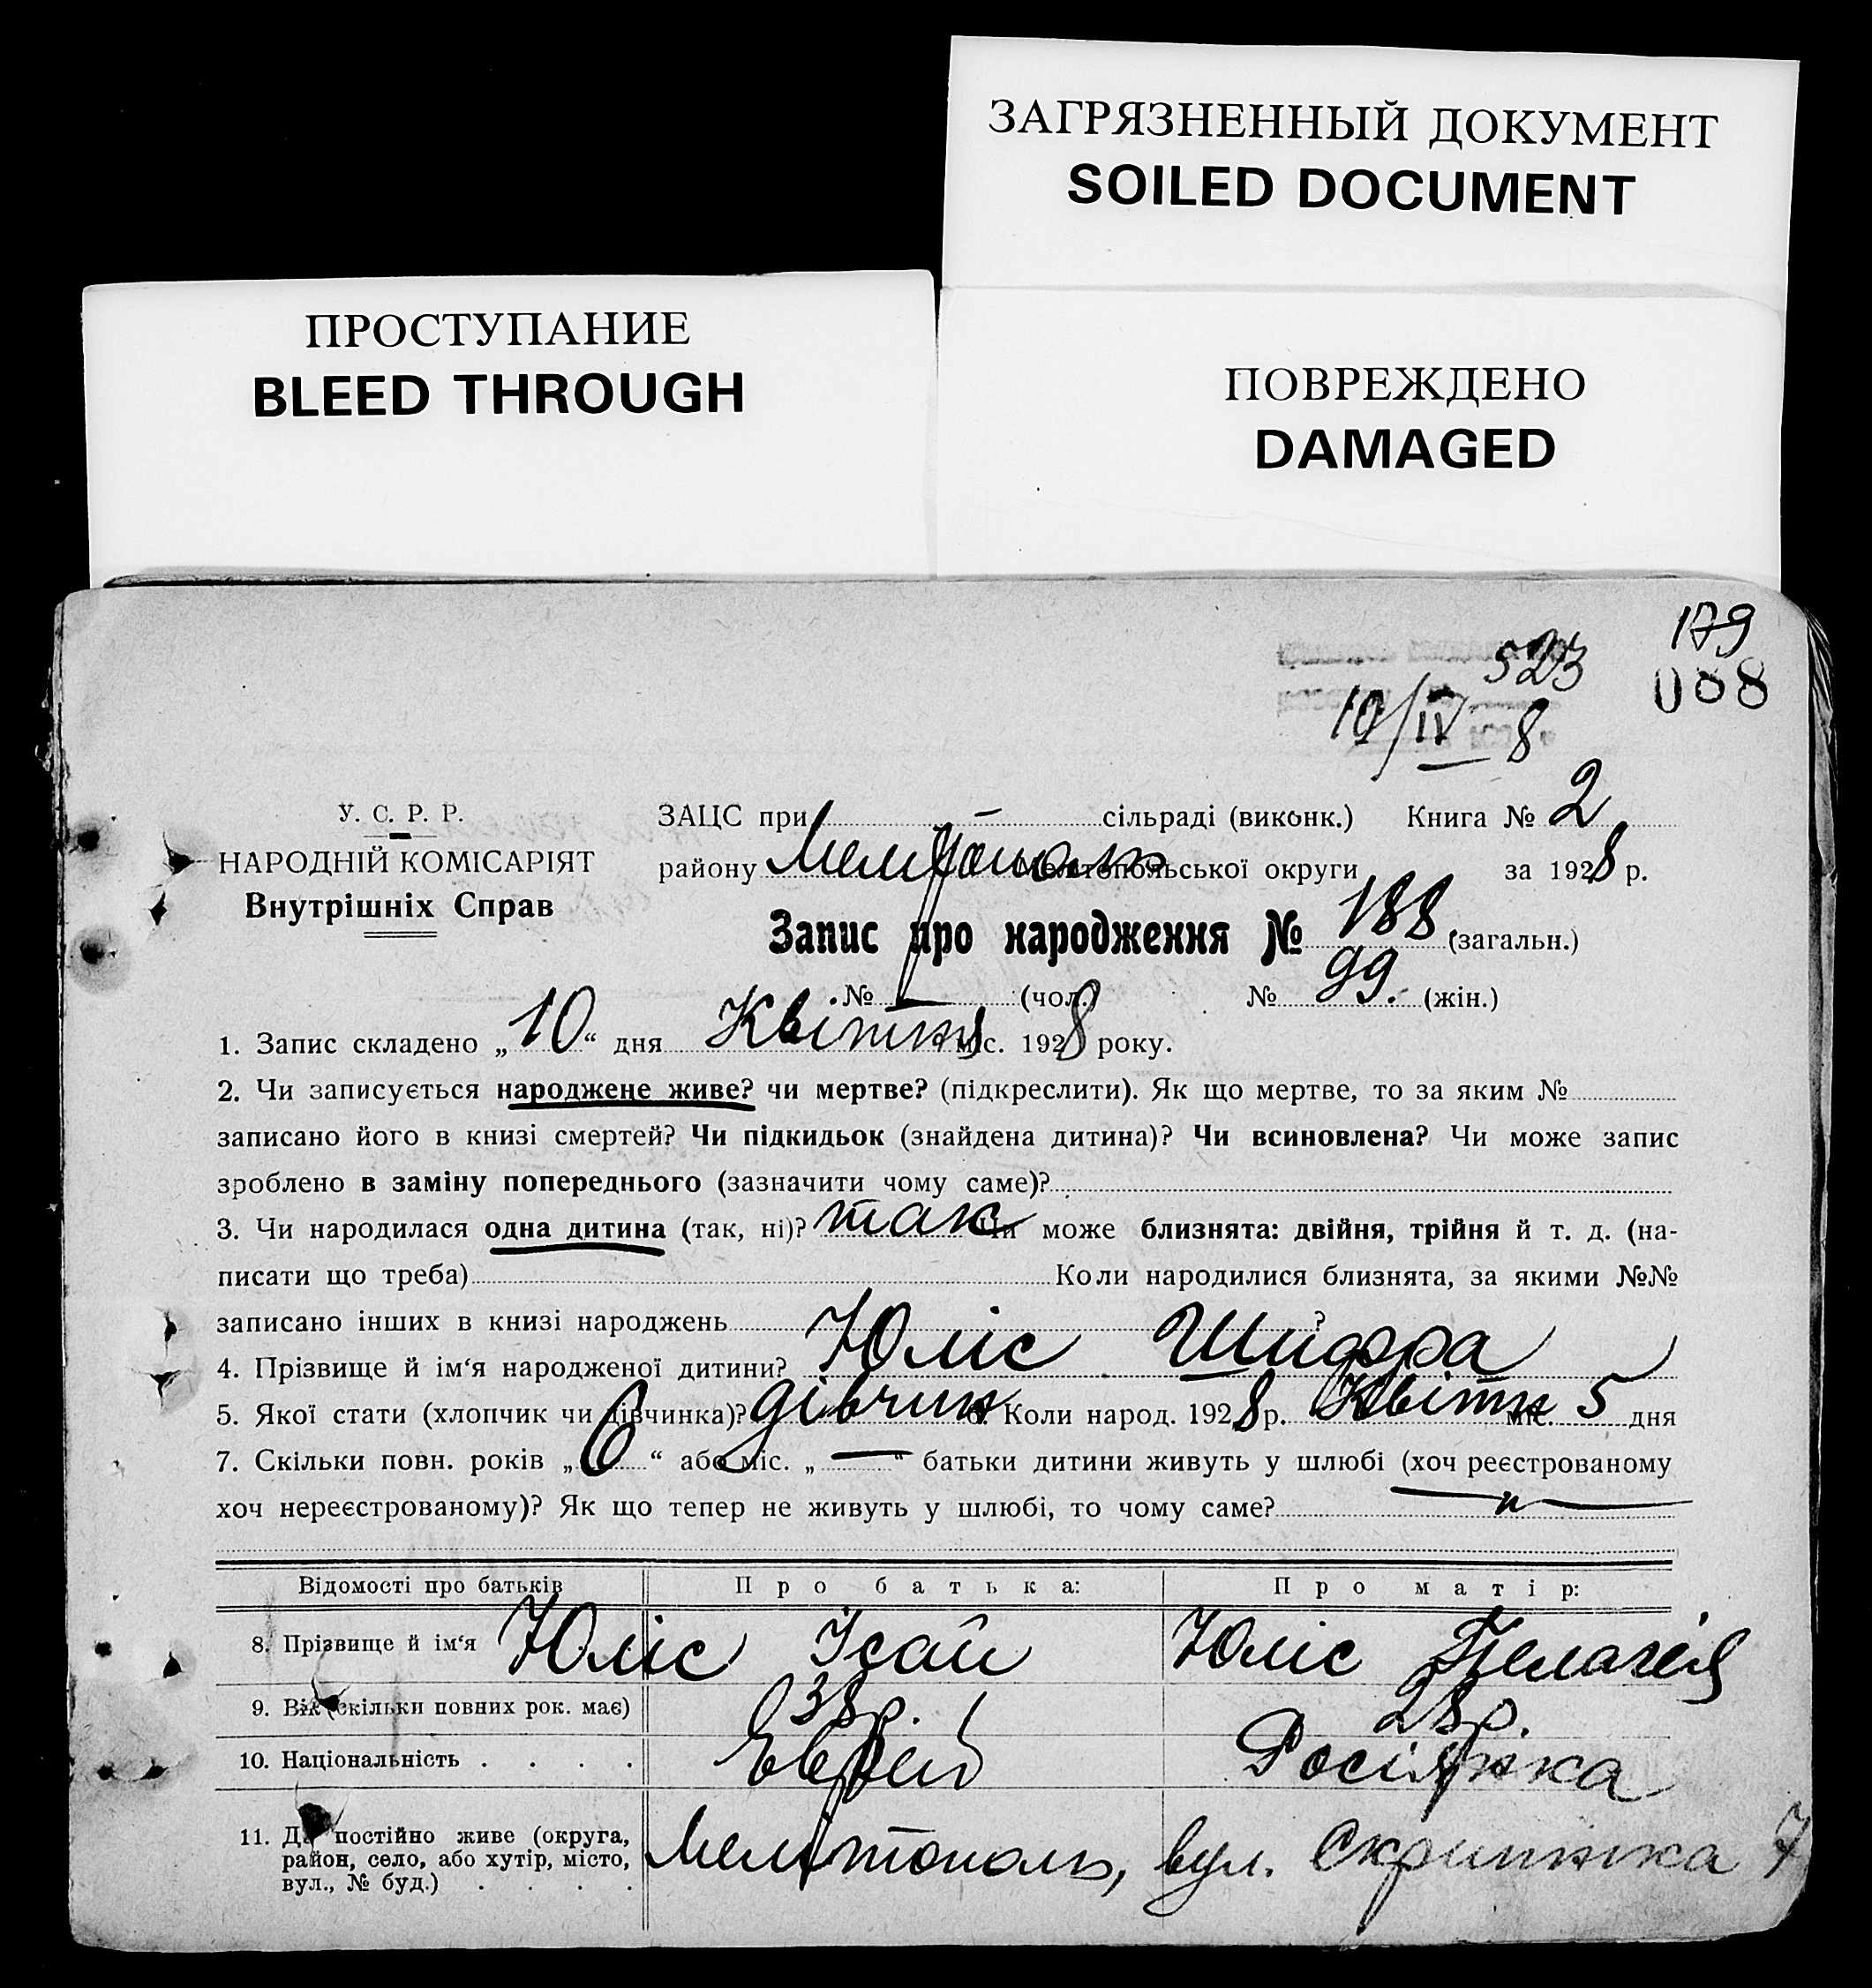 ЗАГРЯЗНЕННЫЙ ДОКУМЕНТ
SOILED DOCUMENT
ПРОСТУПАНИЕ
BLEED THROUGH
ПОВРЕЖДЕНО
DAMAGED
179
523
088
10/IV 8
У. С. Р. Р.
НАРОДНІЙ КОМІСАРІЯТ
Внутрішніх Справ
ЗАЦС при — сільраді (виконк.) Книга № 2
району Мелітополь Мелітопольської округи за 1928 р.
Запис про народження № 188. (загальн.)
№ — (чол.) № 99. (жін.)
1. Запис складено „10“ дня Квітня міс. 1928 року.
2. Чи записується народжене живе? чи мертве? (підкреслити). Як що мертве, то за яким №
записано його в книзі смертей? Чи підкидьок (знайдена дитина)? Чи всиновлена? Чи може запис
зроблено в заміну попереднього (зазначити чому саме)?
3. Чи народилася одна дитина (так, ні)? так Чи може близнята: двійня, трійня й т. д. (на-
писати що треба) Коли народилися близнята, за якими №№
записано інших в книзі народжень ?
4. Прізвище й ім‘я народженої дитини? Юліс Шифра
5. Якої стати (хлопчик чи дівчинка)? дівчин 6. Коли народ. 1928 р. Квітн міс. 5 дня
7. Скільки повн. років „6“ або міс. „—“ батьки дитини живуть у шлюбі (хоч реєстрованому
хоч нереєстрованому)? Як що тепер не живуть у шлюбі, то чому саме? — „ —
Відомості про батьків Про батька: Про матір:
8. Прізвище й ім‘я Юліс Ісай Юліс Пелагея
9. Вік (скільки повних рок. має) 38 р. 28 р.
10. Національність . . . . Еврей Росіянка
11. Де постійно живе (округа,
район, село, або хутір, місто,
вул., № буд.) . . . . Мелітополь, вул. Скрипника 7